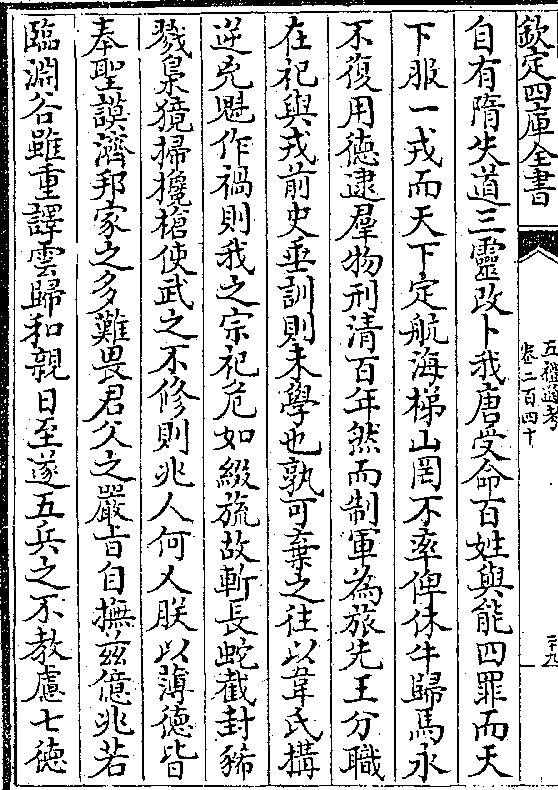 欽定四庫全書
五禮通考
卷二百四十
三十九
自有隋失道三靈改卜我唐受命百姓與能四罪而天
下服一戎而天下定航海梯山罔不率俾休牛歸馬永
不復用德逮羣物刑清百年然而制軍為旅先王分職
在祀與戎前史垂訓則未學也孰可棄之往以韋氏搆
逆兇魁作禍則我之宗祀危如綴旒故斬長蛇截封豨
戮梟獍掃攙槍使武之不修則兆人何人朕以薄德皆
奉聖謨濟邦家之多難畏君父之嚴旨自撫茲億兆若
臨淵谷雖重譯雲歸和親日至遂五兵之不教慮七徳